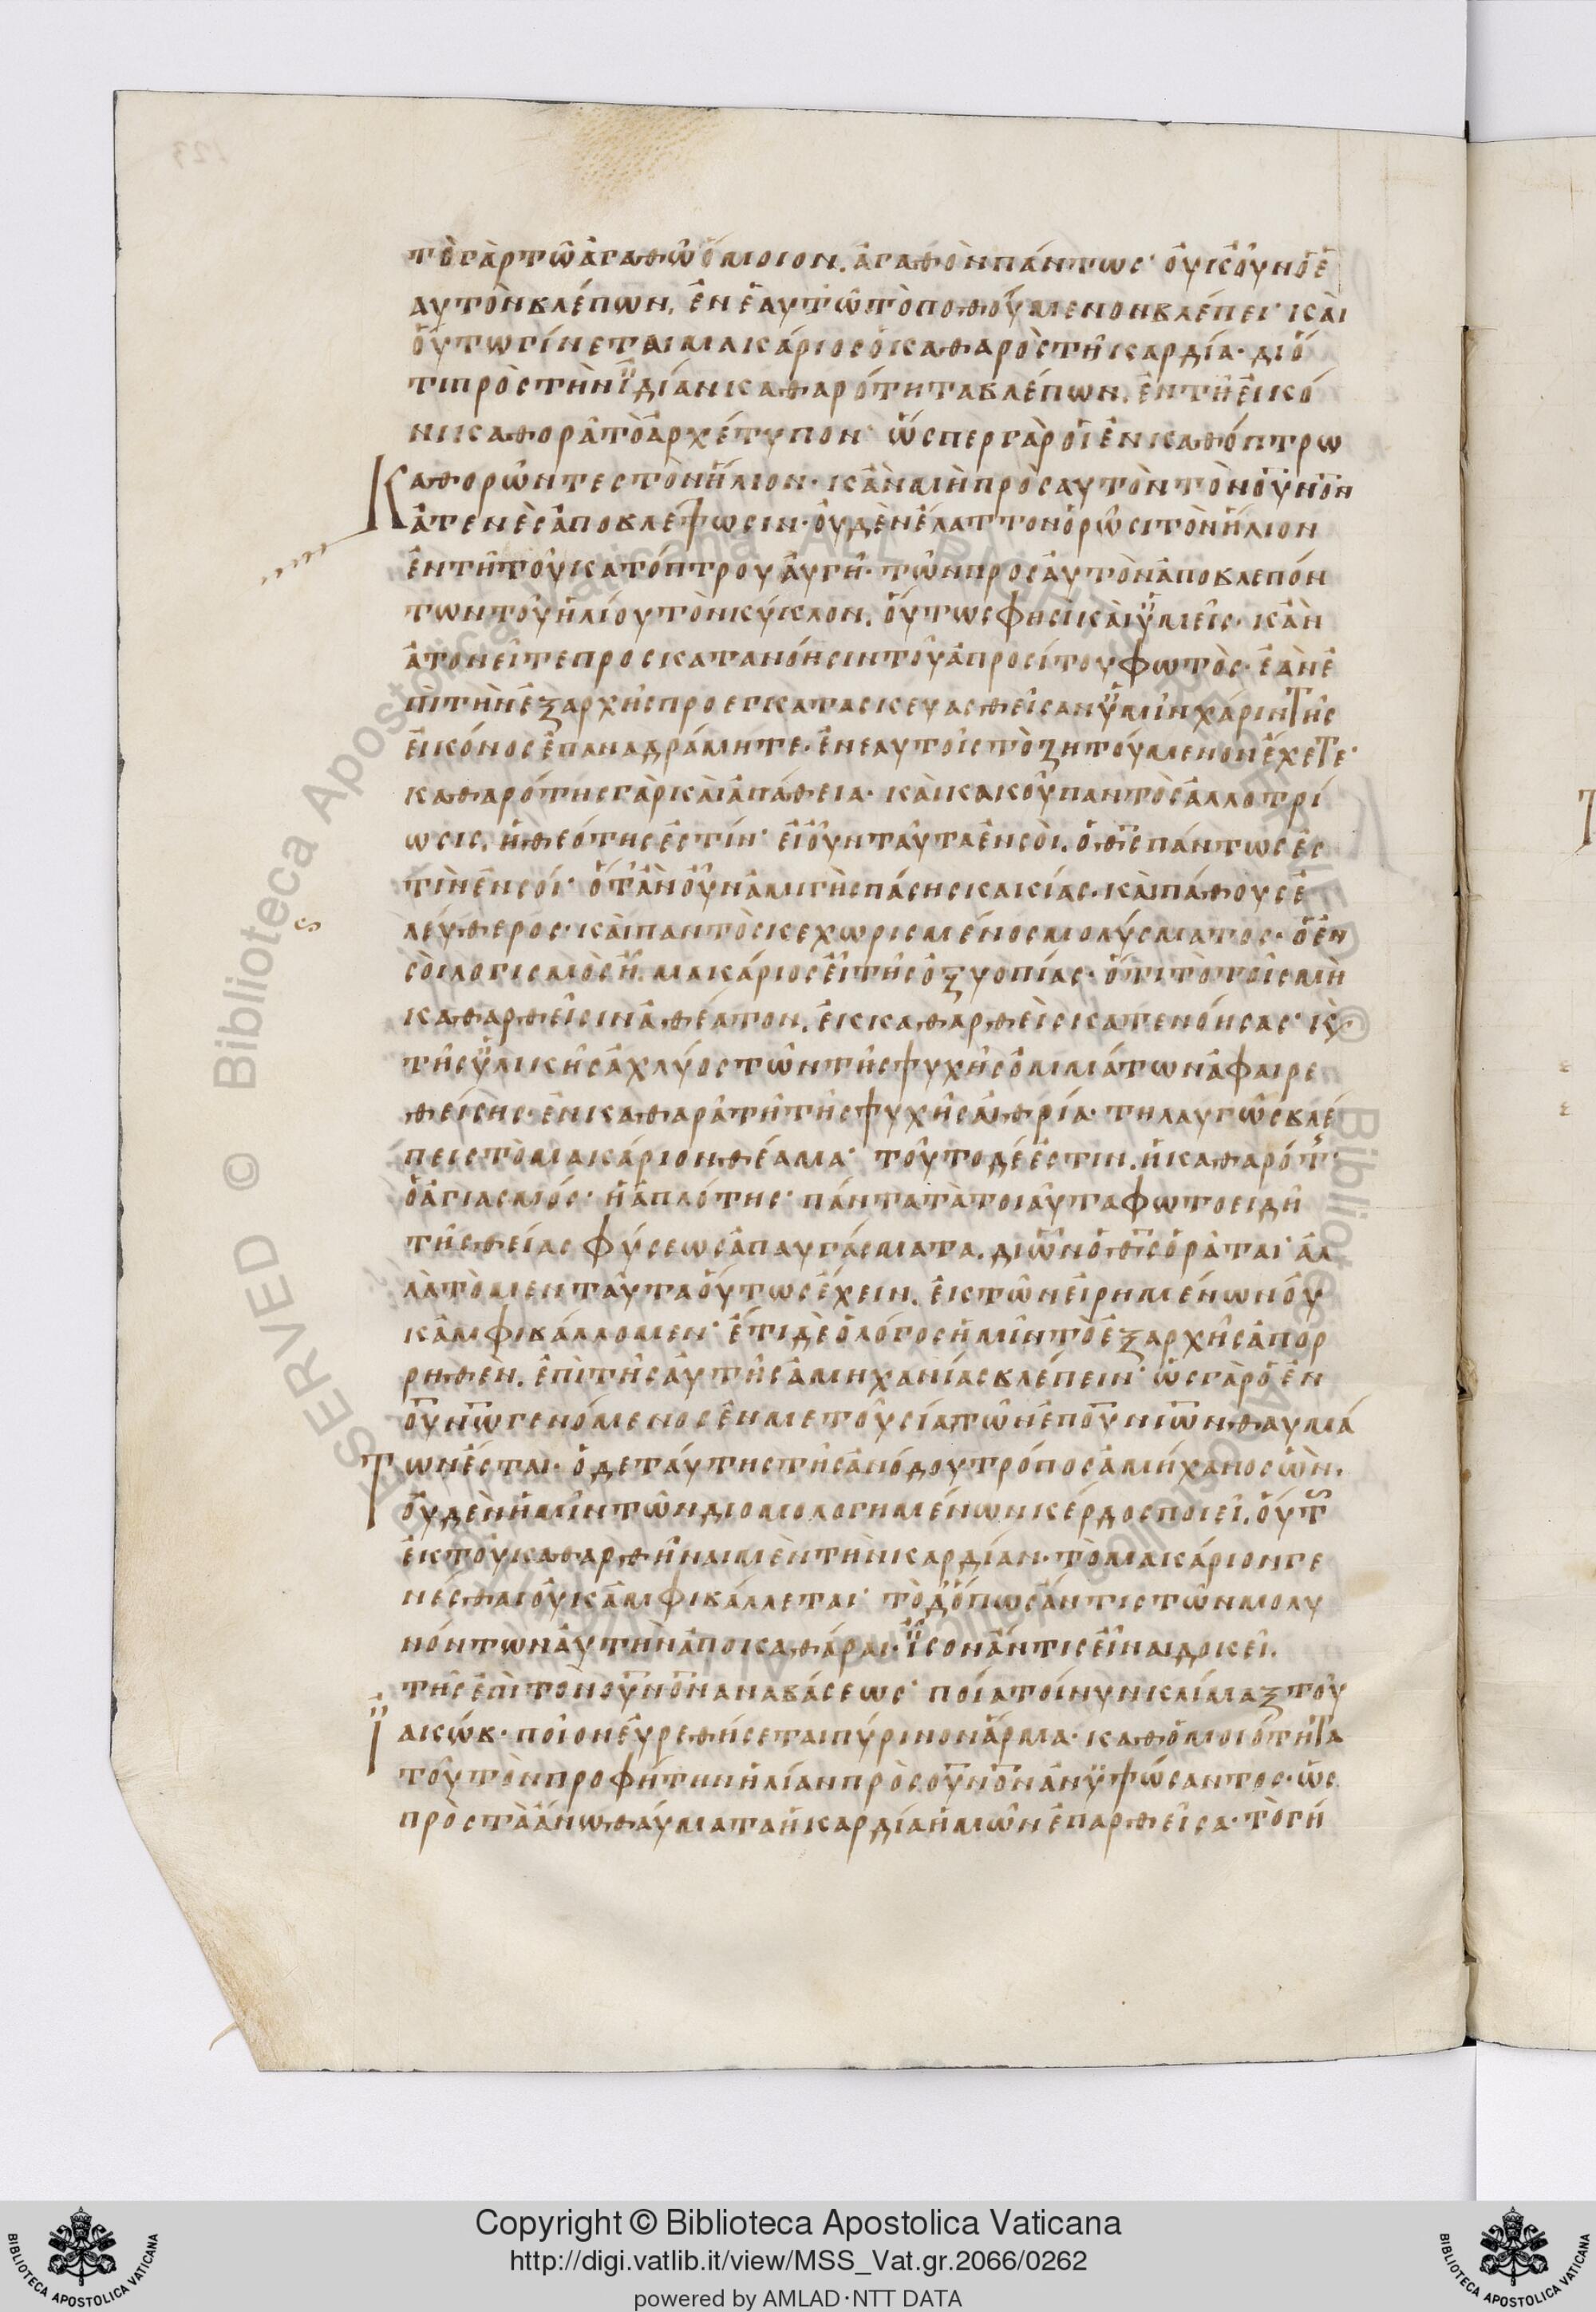 τὸ γὰρ τῶ ἀγαθῶ ὅμοιον. ἀγαθὸν πάντως· οὐκοῦν ὁ ἑ
αυτὸν βλέπων, ἐν ἑαυτῶ τὸ ποθούμενον βλέπει· καὶ
οὕτω γίνεται μακάριος ὁ καθαρὸς τῆ καρδία· διό
τι πρὸς τὴν ϊδίαν καθαρότητα βλέπων, ἐν τῆ εἰκό
νι καθορᾶ τὸ ἀρχέτυπον· ὥσπερ γὰρ οἱ ἐν καθόπτρω
Καθορῶντες τὸν ἥλιον· κἂν μὴ πρὸς αυτὸν τὸν οὐνὸν
ἀτενὲς ἀποβλέψωσιν· οὐδὲν ἔλαττον ὁρῶσι τὸν ἥλιον
ἐν τῆ τοῦ κατόπτρου αὐγῆ· τῶν προς αὐτὸν ἀποβλεπόν
των τοῦ ἡλίου τὸν κύκλον. οὕτως φησὶ καὶ ϋμεῖς· κἂν
ἀτονεῖτε προς κατανόησιν τοῦ ἀπροσίτου φωτὸς· ἐὰν ἐ
πὶ τὴν ἐξαρχῆς προεγκατασκευασθεῖσαν ϋμῖν χάριν τῆς
εἰκόνος ἐπαναδράμητε· ἐν εαυτοῖς τὸ ζητούμενον ἔχετε·
καθαρότης γὰρ καὶ ἀπάθεια· καὶ κακοῦ παντὸς ἀλλοτρί
ωσις, ἡ θεότης ἐστίν· εἰ οὖν ταῦτα ἐν σοὶ. ὁ θς πάντως ἐς
τὶν ἐν σοί· ὅτἂν οὖν ἀμιγὴς πάσης κακίας· καὶ πάθους ἐ
λεύθερος· καὶ παντὸς κεχωρισμένος μολύσματος· ὁ ἐν
σοὶ λογισμὸς ἦ. μακάριος εἶ τῆς ὀξυοπίας· ὅτι τὸ τοῖς μὴ
καθαρθεῖσιν ἀθέατον, ἐκκαθαρθεὶς κατενόησας· κ̀
τῆς ϋλικῆς ἀχλύος τῶν τῆς ψυχῆς ὀμμάτων ἀφαιρε
θείσης· ἐν καθαρᾶ τῆ τῆς ψυχῆς αἰθρία· τηλαυγῶς βλέ
πεις τὸ μακάριον θέαμα· τοῦτο δέ ἐστιν. ἡ καθαρότ
ὁ ἁγιασμός· ἡ ἁπλότης· πάντα τὰ τοιαῦτα φωτοειδῆ
τῆς θείας φύσεως ἀπαυγάσματα. δι ὧν ὁ θς ὁρᾶται· ἀλ
λὰ τὸ μεν ταῦτα οὕτως ἔχειν. ἐκ τῶν εἰρημένων οὐ
κἀμφιβάλλομεν· ἔτι δὲ ὁ λόγος ἡμῖν τὸ ἐξαρχῆς ἀπορ
ρηθὲν. ἐπὶ τῆς αὐτῆς ἀμηχανίας βλέπειν· ὡς γὰρ ὁ ἐν
ουνω γενόμενος ἐν μετουσία τῶν ἐπουνιων θαυμά
Των ἔσται· ὁ δε ταύτης τῆς ἀνόδου τρόπος ἀμήχανος ὢν.
οὐδὲν ἡμῖν τῶν διομολογημένων κέρδος ποιεῖ. οὕτω
ἐκ τοῦ καθαρθῆναι μὲν τὴν καρδίαν· τὸ μακάριον γε
νέσθαι οὐκ ἀμφιβάλλεται· τὸ δ ὅπως ἄν τις τῶν μολυ
νόντων αὐτὴν ἀποκαθάραι· ἴσον ἄν τις εἶναι δοκεῖ.
τῆς ἐπὶ τὸν ουνον αναβάσεως· ποία τοίνυν κλίμαξ τοῦ
ϊακώβ· ποῖον εὑρεθήσεται πύρινον ἅρμα· καθομοιότητα
τοῦ τὸν προφήτην ἡλίαν πρὸς ουνον ἀνυψώσαντος· ὡς
πρὸς τὰ ἄνω θαύματα ἡ καρδία ἡμῶν ἐπαρθεῖσα· τὸ γή
Copyright © Biblioteca Apostolica Vaticana
http://digi.vatlib.it/view/MSS_Vat.gr.2066/0262
powered by AMLAD·NTT DATA